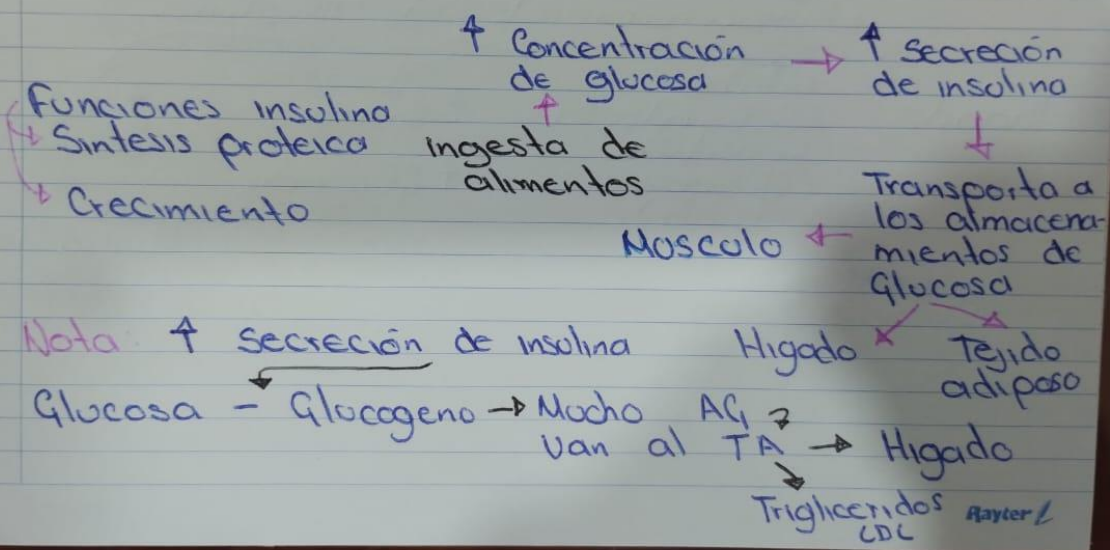 ↑ Concentración
de glucosa
→ ↑ Secreción
de insulina
Funciones insulina
Sintesis proteica
Crecimiento
ingesta de
alimentos
Transporta a
los almacena-
mientos de
Glucosa
Musculo
Higado
Tejido
adiposo
Nota: ↑ Secreción de insulina
Glucosa – Glucogeno → Mucho AG
van al TA → Higado
Trigliceridos
LDL